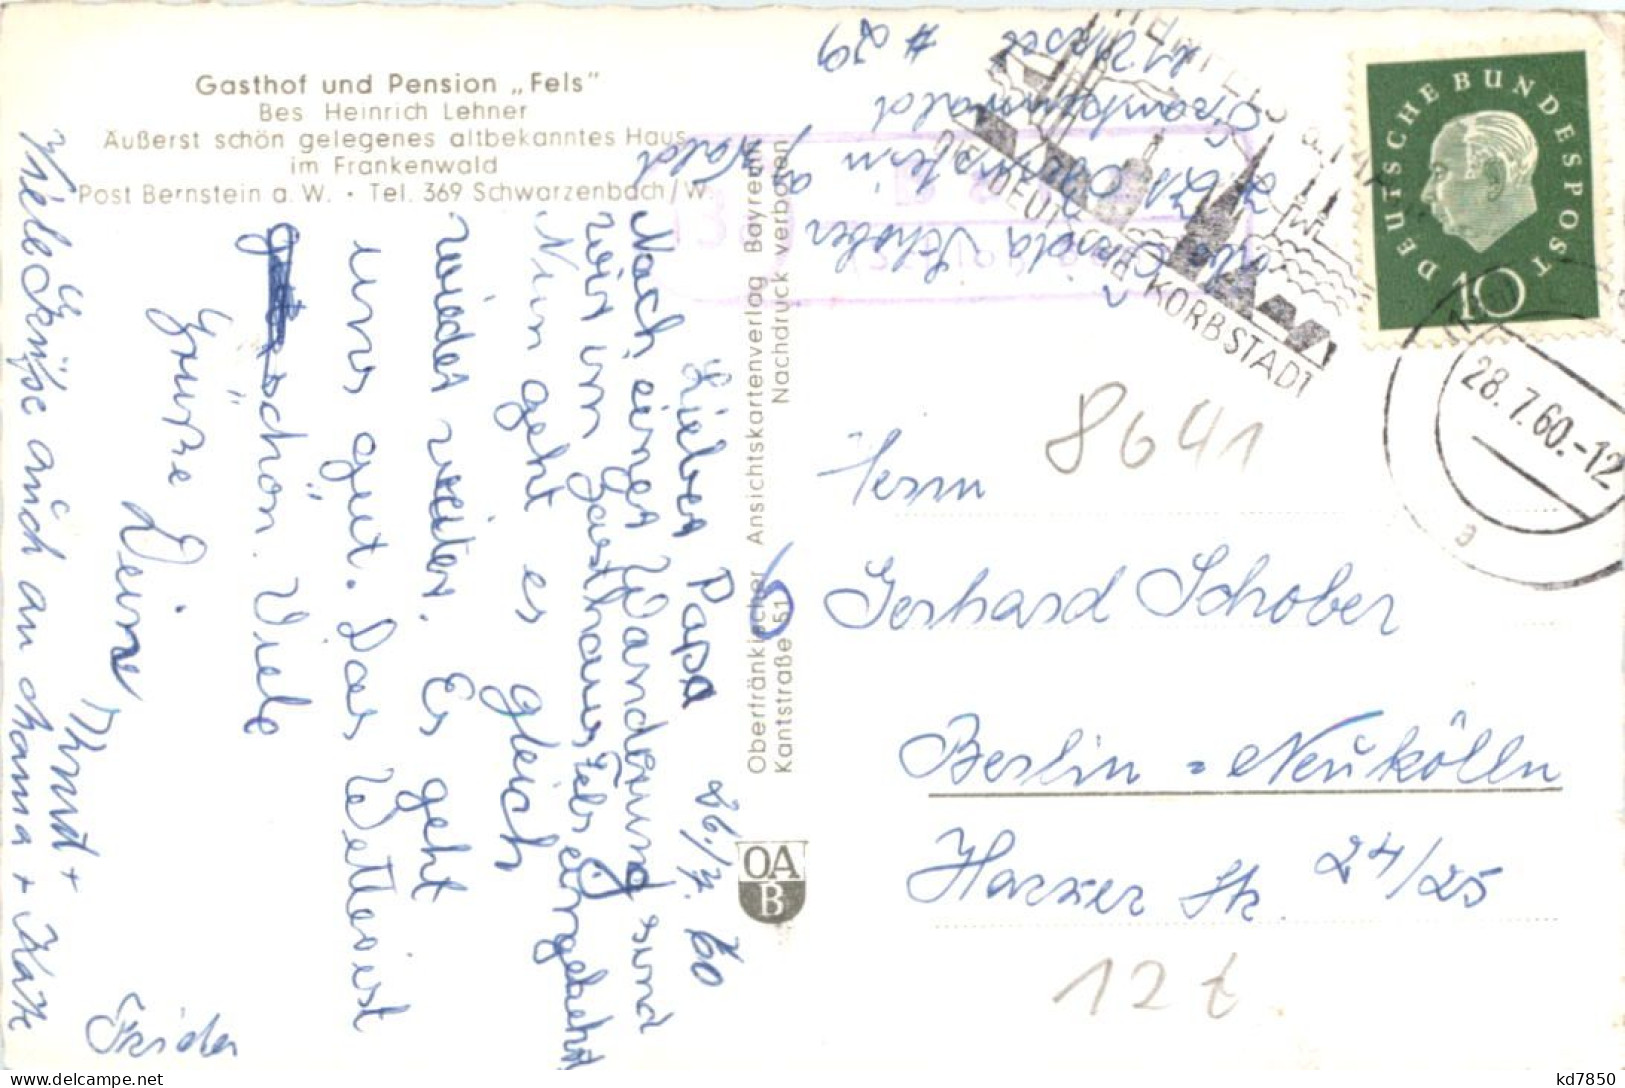 Gasthof und Pension „Fels“
Bes Heinrich Lehner
Äußerst schön gelegenes altbekanntes Haus
im Frankenwald
Post Bernstein a. W. • Tel. 369 Schwarzenbach/W
Lieber Papa 26./7. 60
Nach einer Wanderung sind
wir im Gasthaus Fels eingekehrt
Nun geht es gleich
wieder weiter. Es geht
uns gut. Das Wetter ist
schön. Viele
Grüße Deine
+
Frieda
Viele Grüße auch an Mama +
Oberfränkischer Ansichtskartenverlag Bayreuth
Kantstraße 51 Nachdruck verboten
OA
B
Schober
Frankenwald
# 29
DIE DEUTSCHE KORBSTADT
DEUTSCHE BUNDESPOST
10
28.7.60.-12
a
8641
Herrn
Gerhard Schober
Berlin - Neukölln
Harzer Str 24/25
12 t
kd7850